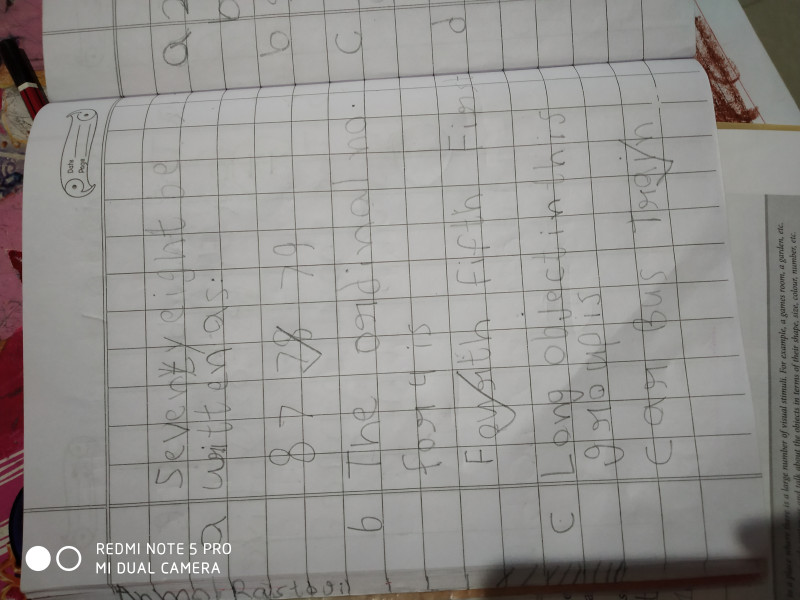 Date
Page
Seventy eight be
a written as.
87 78 79
b The ordinal no.
for 4 is
Fourth Fifth First
c Long object in this
group is
Car Bus Train.
a 2
b
c
d
is a place where there is a large number of visual stimuli. For example, a games room, a garden, etc.
talk about the objects in terms of their shape, size, colour, number, etc.
REDMI NOTE 5 PRO
MI DUAL CAMERA